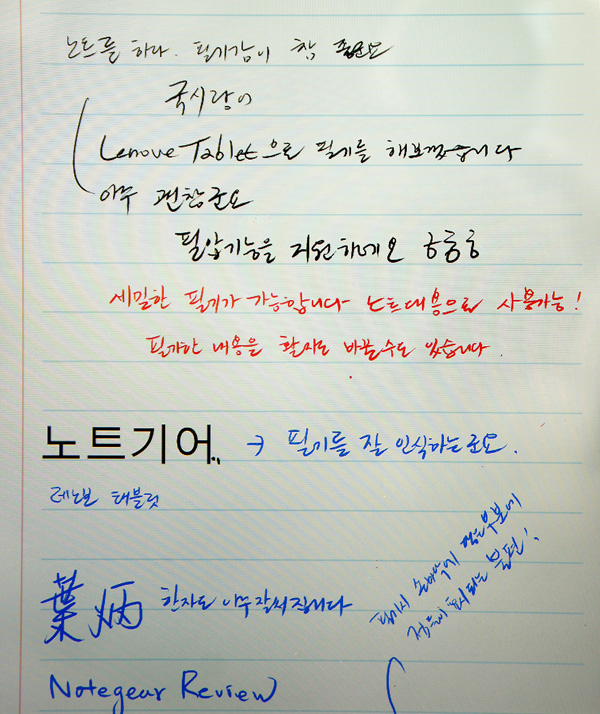 노트를 하다. 필기감이 참 좋군요
국시랑이
Lenove Tablet으로 필기를 해보았습니다
아무 괜찮군요
필압기능을 지원하네요 ㅎㅎㅎ
세밀한 필기가 가능합니다 노트대용으로 사용가능!
필기한 내용을 활자로 바꿀수도 있습니다.
노트기어.. → 필기를 잘 인식하는군요.
레노보 태블릿
필기시 손바닥에
불편!
葉炳 한자도 아주 잘 써집니다
Notegear Review